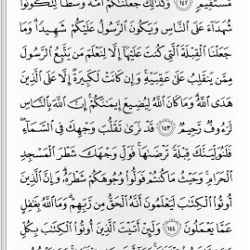 مُّسْتَقِيمٍ ﴿١٤٢﴾ وَكَذَٰلِكَ جَعَلْنَاكُمْ أُمَّةً وَسَطًا لِّتَكُونُوا۟
شُهَدَآءَ عَلَى ٱلنَّاسِ وَيَكُونَ ٱلرَّسُولُ عَلَيْكُمْ شَهِيدًا وَمَا
جَعَلْنَا ٱلْقِبْلَةَ ٱلَّتِى كُنتَ عَلَيْهَآ إِلَّا لِنَعْلَمَ مَن يَتَّبِعُ ٱلرَّسُولَ
مِمَّن يَنقَلِبُ عَلَىٰ عَقِبَيْهِ وَإِن كَانَتْ لَكَبِيرَةً إِلَّا عَلَى ٱلَّذِينَ
هَدَى ٱللَّهُ وَمَا كَانَ ٱللَّهُ لِيُضِيعَ إِيمَٰنَكُمْ إِنَّ ٱللَّهَ بِٱلنَّاسِ
لَرَءُوفٌ رَّحِيمٌ ﴿١٤٣﴾ قَدْ نَرَىٰ تَقَلُّبَ وَجْهِكَ فِى ٱلسَّمَآءِ
فَلَنُوَلِّيَنَّكَ قِبْلَةً تَرْضَىٰهَا فَوَلِّ وَجْهَكَ شَطْرَ ٱلْمَسْجِدِ
ٱلْحَرَامِ وَحَيْثُ مَا كُنتُمْ فَوَلُّوا۟ وُجُوهَكُمْ شَطْرَهُۥ وَإِنَّ ٱلَّذِينَ
أُوتُوا۟ ٱلْكِتَٰبَ لَيَعْلَمُونَ أَنَّهُ ٱلْحَقُّ مِن رَّبِّهِمْ وَمَا ٱللَّهُ بِغَٰفِلٍ
عَمَّا يَعْمَلُونَ ﴿١٤٤﴾ وَلَئِنْ أَتَيْتَ ٱلَّذِينَ أُوتُوا۟ ٱلْكِتَٰبَ بِكُلِّ